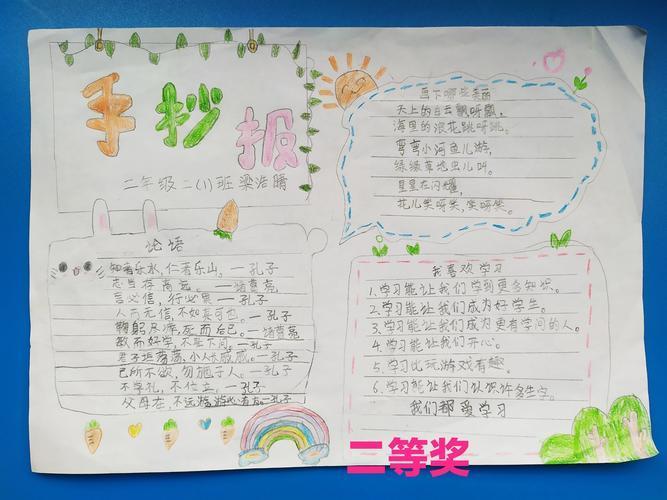 手抄报
二年级二(1)班 梁浩晴
画下哪些美丽
天上的白云飘呀飘,
海里的浪花跳呀跳。
弯弯小河鱼儿游,
绿绿草地虫儿叫。
星星在闪耀,
花儿笑呀笑,笑呀笑。
论语
知者乐水,仁者乐山。—孔子
志当存高远。—诸葛亮
言必信,行必果 —孔子
人而无信,不知其可也。—孔子
鞠躬尽瘁,死而后已。—诸葛亮
敏而好学,不耻下问。—孔子
君子坦荡荡,小人长戚戚。—孔子
己所不欲,勿施于人。—孔子
不学礼,不 立。—孔子
父母在,不远游,游必有方。—孔子
我喜欢学习
1.学习能让我们学到更多知识。
2.学习能让我们成为好学生。
3.学习能让我们成为更有学问的人。
4.学习能让我们开心。
5.学习比玩游戏有趣。
6.学习能让我们认识许多生字。
我们都爱学习
二等奖